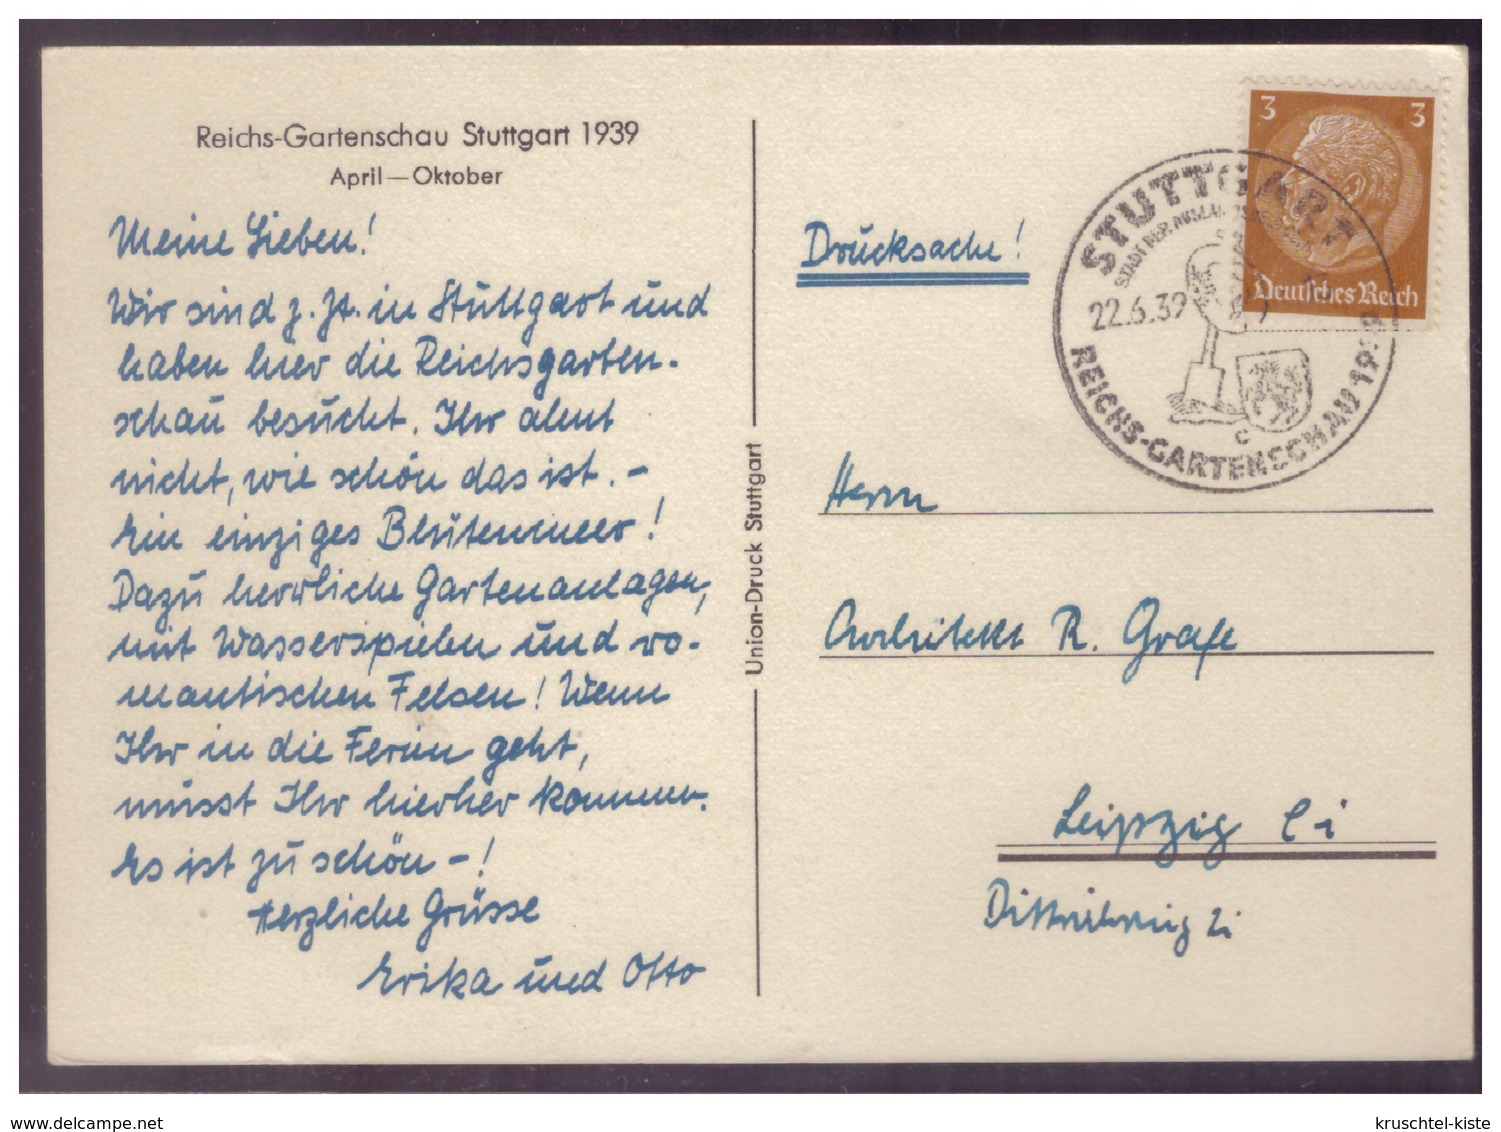 Reichs-Gartenschau Stuttgart 1939
April — Oktober
Meine Lieben!
Wir sind z. Zt. in Stuttgart und
haben hier die Reichsgarten-
schau besucht. Ihr ahnt
nicht, wie schön das ist. -
Ein einziges Blütenmeer!
Dazu herrliche Gartenanlagen,
mit Wasserspielen und ro-
mantischen Felsen! Wenn
Ihr in die Ferien geht,
müsst Ihr hierher kommen.
Es ist zu schön -!
Herzliche Grüsse
Erika und Otto
Union-Druck Stuttgart
Drucksache!
3 3
Deutsches Reich
STUTTGART
STADT DER AUSLANDSDEUTSCHEN
22.6.39
c
REICHS-GARTENSCHAU 1939
Herrn
Architekt R. Grafe
Leipzig C 1
delcampe.net
kruschtel-kiste